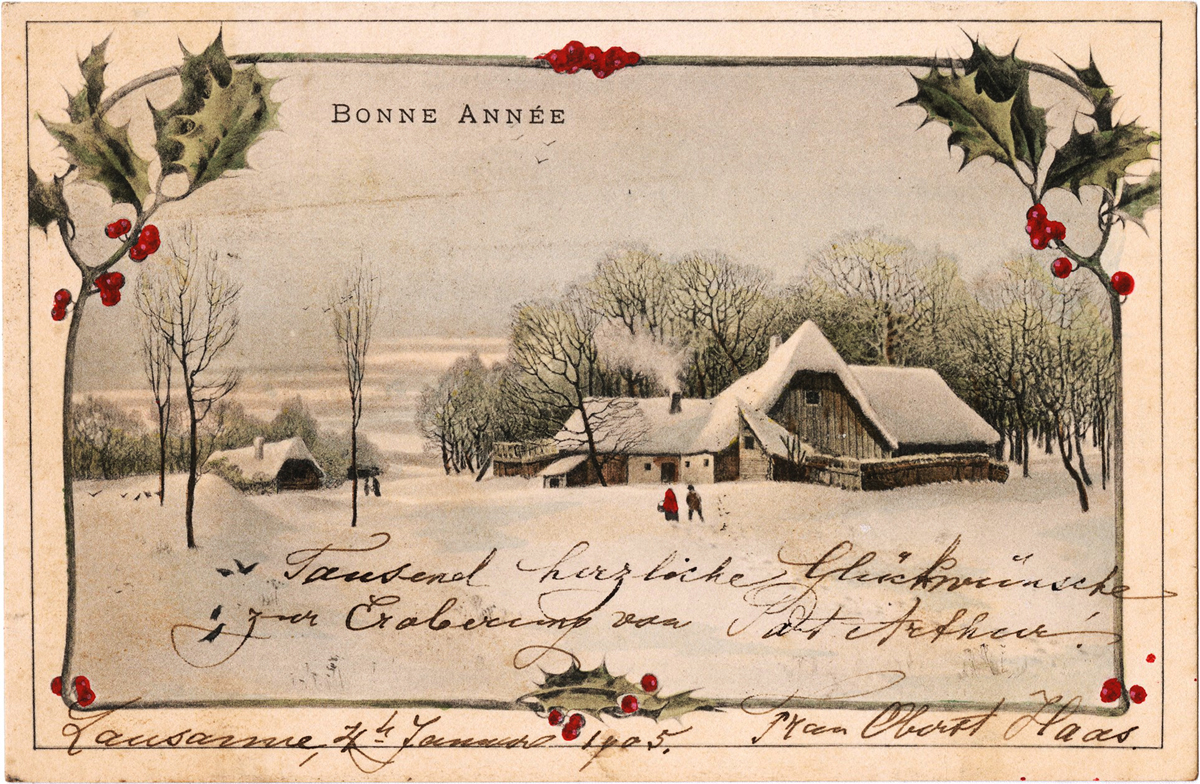 BONNE ANNÉE
Tausend herzliche Glückwünsche
zur Eroberung von Port Arthur!
Lausanne, 4th Januar 1905.
Frau Oberst Haas